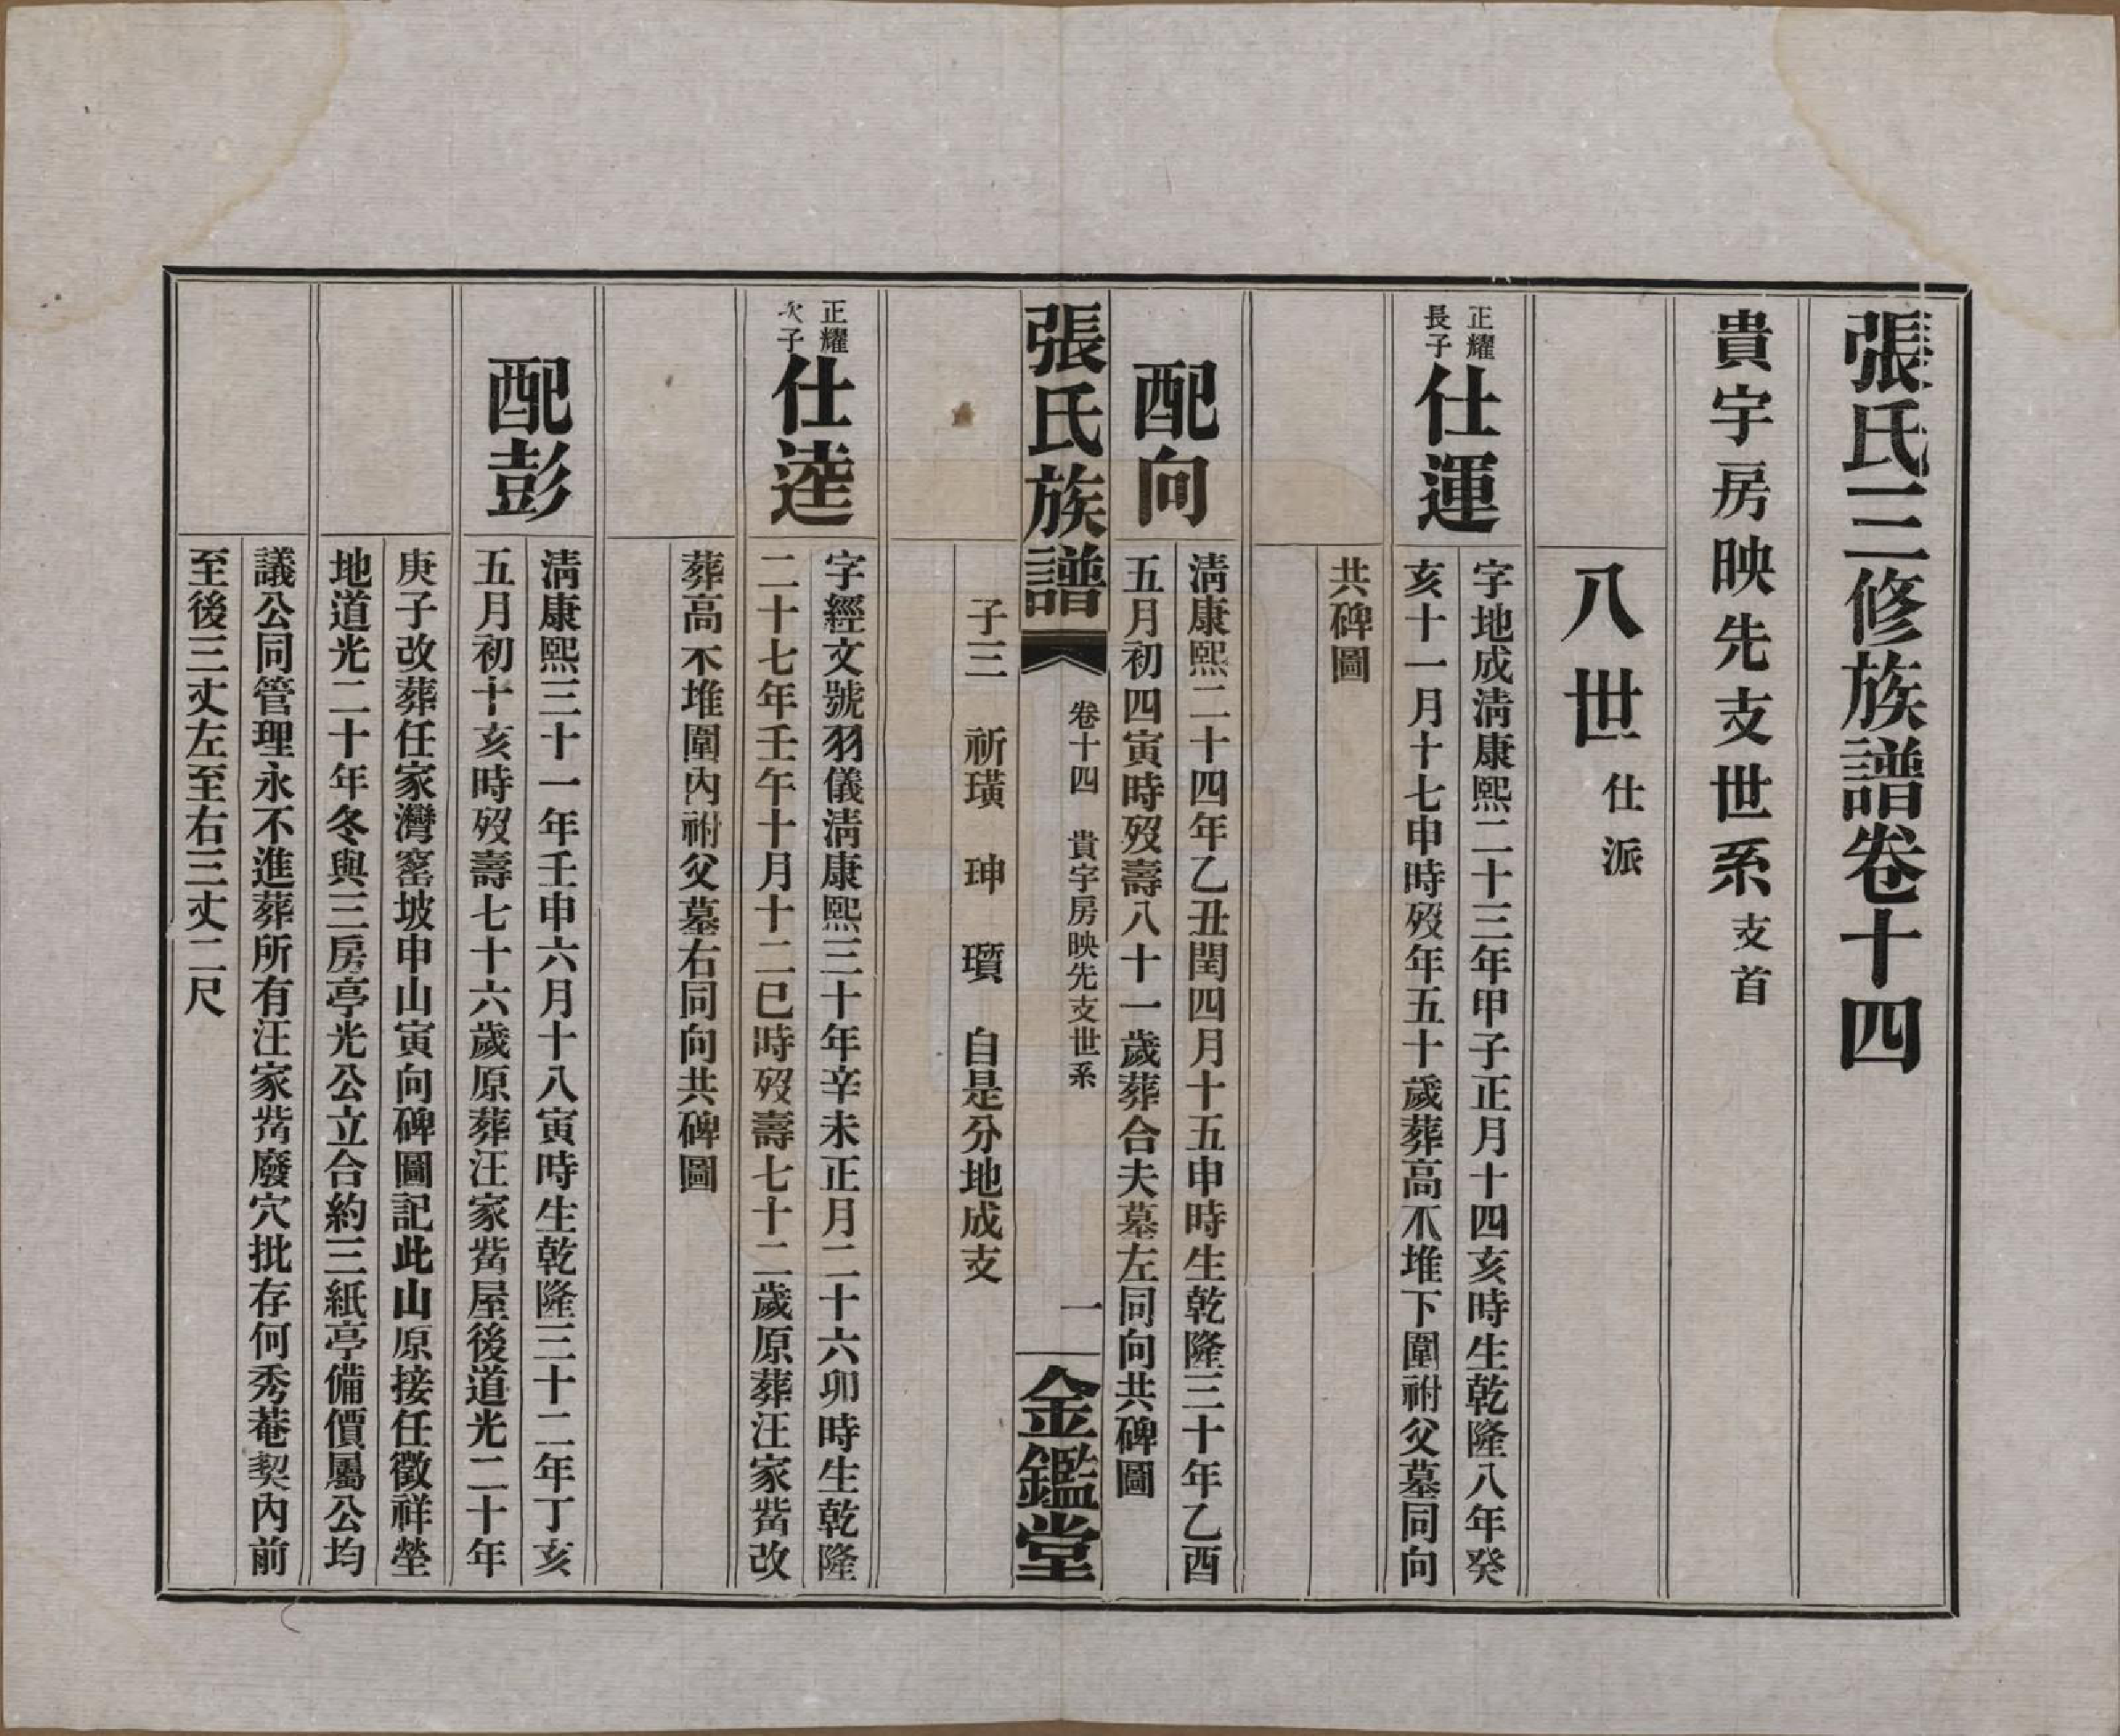 張氏三修族譜卷十四
貴宇房映先支世系支首
八世仕派
正耀
長子
仕運
字地成淸康熙二十三年甲子正月十四亥時生乾隆八年癸
亥十一月十七申時歿年五十歲葬高不堆下圍祔父墓同向
共碑圖
配向
淸康熙二十四年乙丑閏四月十五申時生乾隆三十年乙酉
五月初四寅時歿壽八十一歲葬合夫墓左同向共碑圖
張氏族譜
卷十四 貴宇房映先支世系
一
金鑑堂
子三 祈璜 珅 瓚 自是分地成支
正耀
次子
仕逵
字經文號羽儀淸康熙三十年辛未正月二十六卯時生乾隆
二十七年壬午十月十二巳時歿壽七十二歲原葬汪家喾改
葬高不堆圍內祔父墓右同向共碑圖
配彭
淸康熙三十一年壬申六月十八寅時生乾隆三十二年丁亥
五月初十亥時歿壽七十六歲原葬汪家喾屋後道光二十年
庚子改葬任家灣窰坡申山寅向碑圖記此山原接任徵祥塋
地道光二十年冬與三房亭光公立合約三紙亭備價屬公均
議公同管理永不進葬所有汪家喾廢穴批存何秀菴契內前
至後三丈左至右三丈二尺